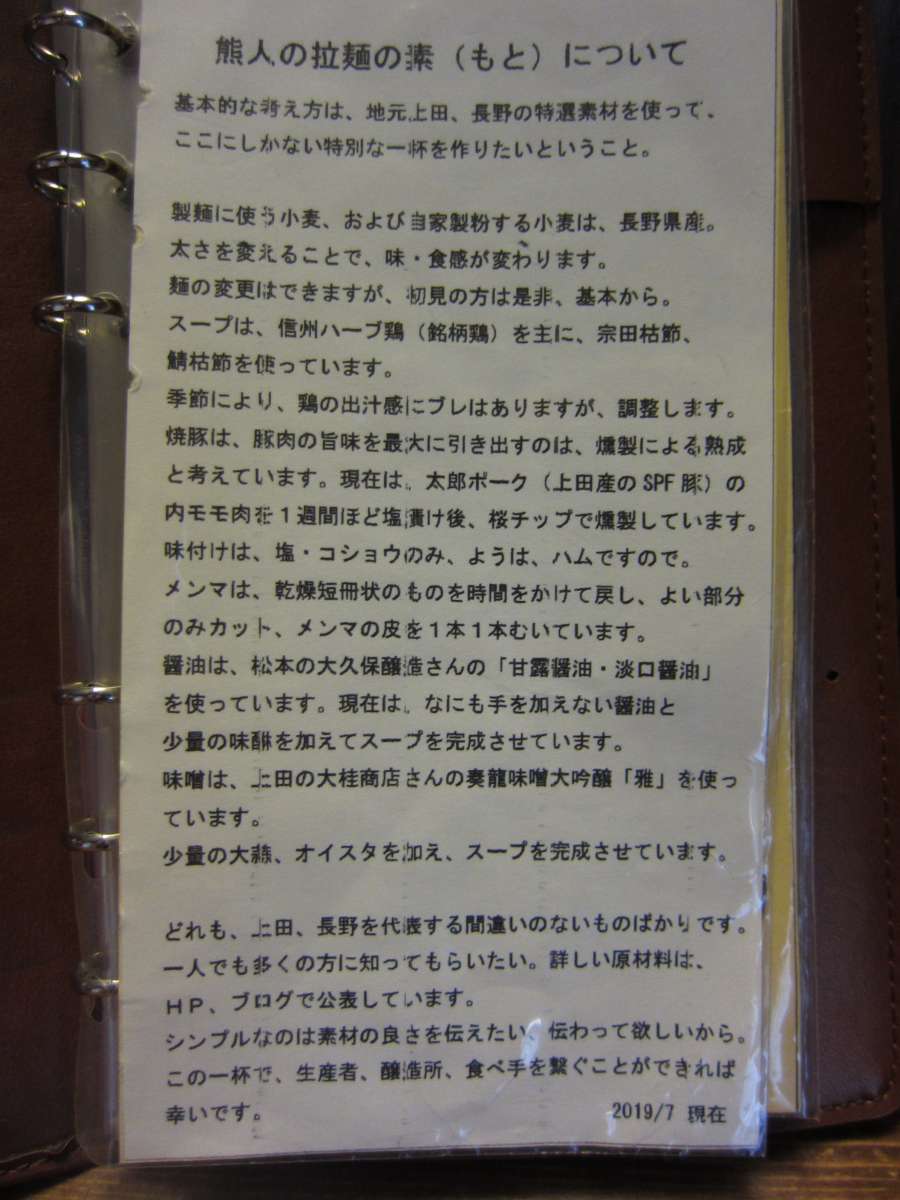 熊人の拉麺の素（もと）について
基本的な考え方は、地元上田、長野の特選素材を使って、
ここにしかない特別な一杯を作りたいということ。
製麺に使う小麦、および自家製粉する小麦は、長野県産。
太さを変えることで、味・食感が変わります。
麺の変更はできますが、初見の方は是非、基本から。
スープは、信州ハーブ鶏（銘柄鶏）を主に、宗田枯節、
鯖枯節を使っています。
季節により、鶏の出汁感にブレはありますが、調整します。
焼豚は、豚肉の旨味を最大に引き出すのは、燻製による熟成
と考えています。現在は、太郎ポーク（上田産のSPF豚）の
内モモ肉を１週間ほど塩漬け後、桜チップで燻製しています。
味付けは、塩・コショウのみ、ようは、ハムですので。
メンマは、乾燥短冊状のものを時間をかけて戻し、よい部分
のみカット、メンマの皮を１本１本むいています。
醤油は、松本の大久保醸造さんの「甘露醤油・淡口醤油」
を使っています。現在は、なにも手を加えない醤油と
少量の味醂を加えてスープを完成させています。
味噌は、上田の大桂商店さんの奏龍味噌大吟醸「雅」を使っ
ています。
少量の大蒜、オイスタを加え、スープを完成させています。
どれも、上田、長野を代表する間違いのないものばかりです。
一人でも多くの方に知ってもらいたい。詳しい原材料は、
ＨＰ、ブログで公表しています。
シンプルなのは素材の良さを伝えたい、伝わって欲しいから。
この一杯で、生産者、醸造所、食べ手を繋ぐことができれば
幸いです。 2019/7 現在